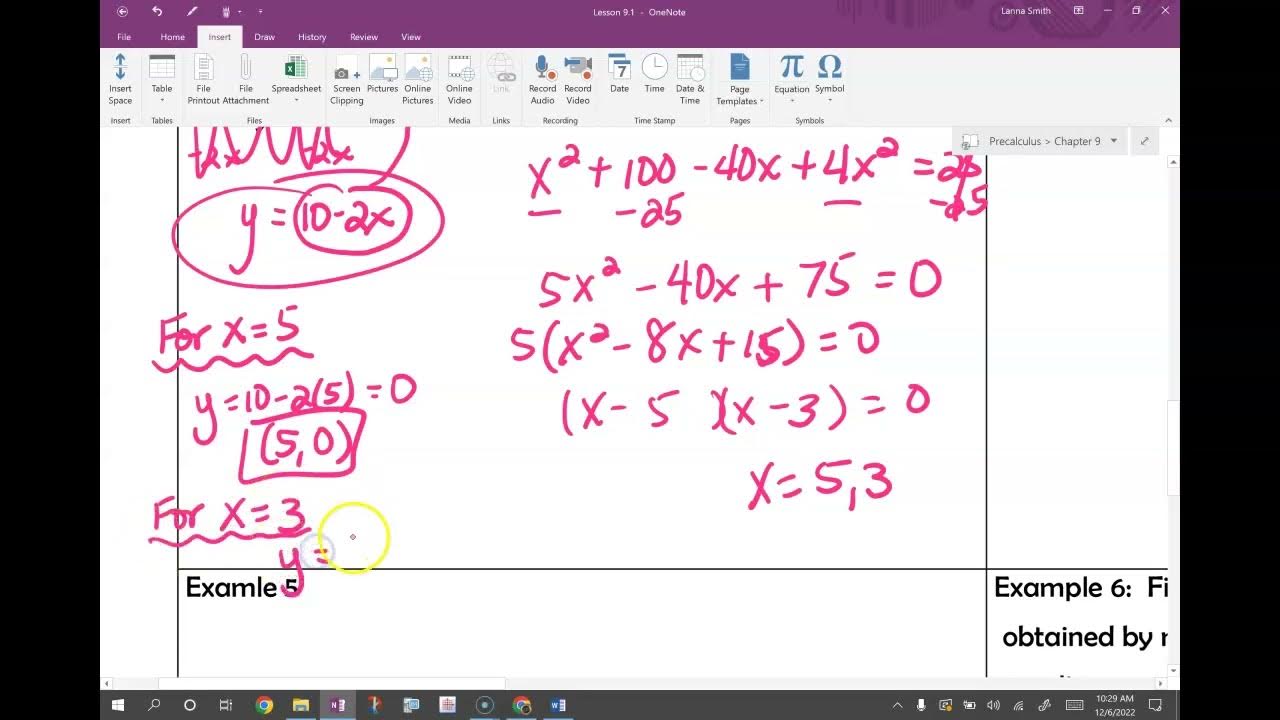 Lesson 9.1 - OneNote
Lanna Smith
File Home Insert Draw History Review View
Insert Space
Table
File Printout
File Attachment
Spreadsheet
Screen Clipping
Pictures
Online Pictures
Online Video
Link
Record Audio
Record Video
Date
Time
Date & Time
Page Templates
Equation
Symbol
Insert Tables Files Images Media Links Recording Time Stamp Pages Symbols
Precalculus > Chapter 9
+2x +2x
y = 10-2x
For x=5
y=10-2(5)=0
(5,0)
For x=3
y=
x² + 100 - 40x + 4x² = 25
-25 -25
5x² - 40x + 75 = 0
5(x² - 8x + 15) = 0
(x - 5 )(x - 3) = 0
x = 5,3
Examle 5
Example 6: Fi
obtained by
10:29 AM
12/6/2022